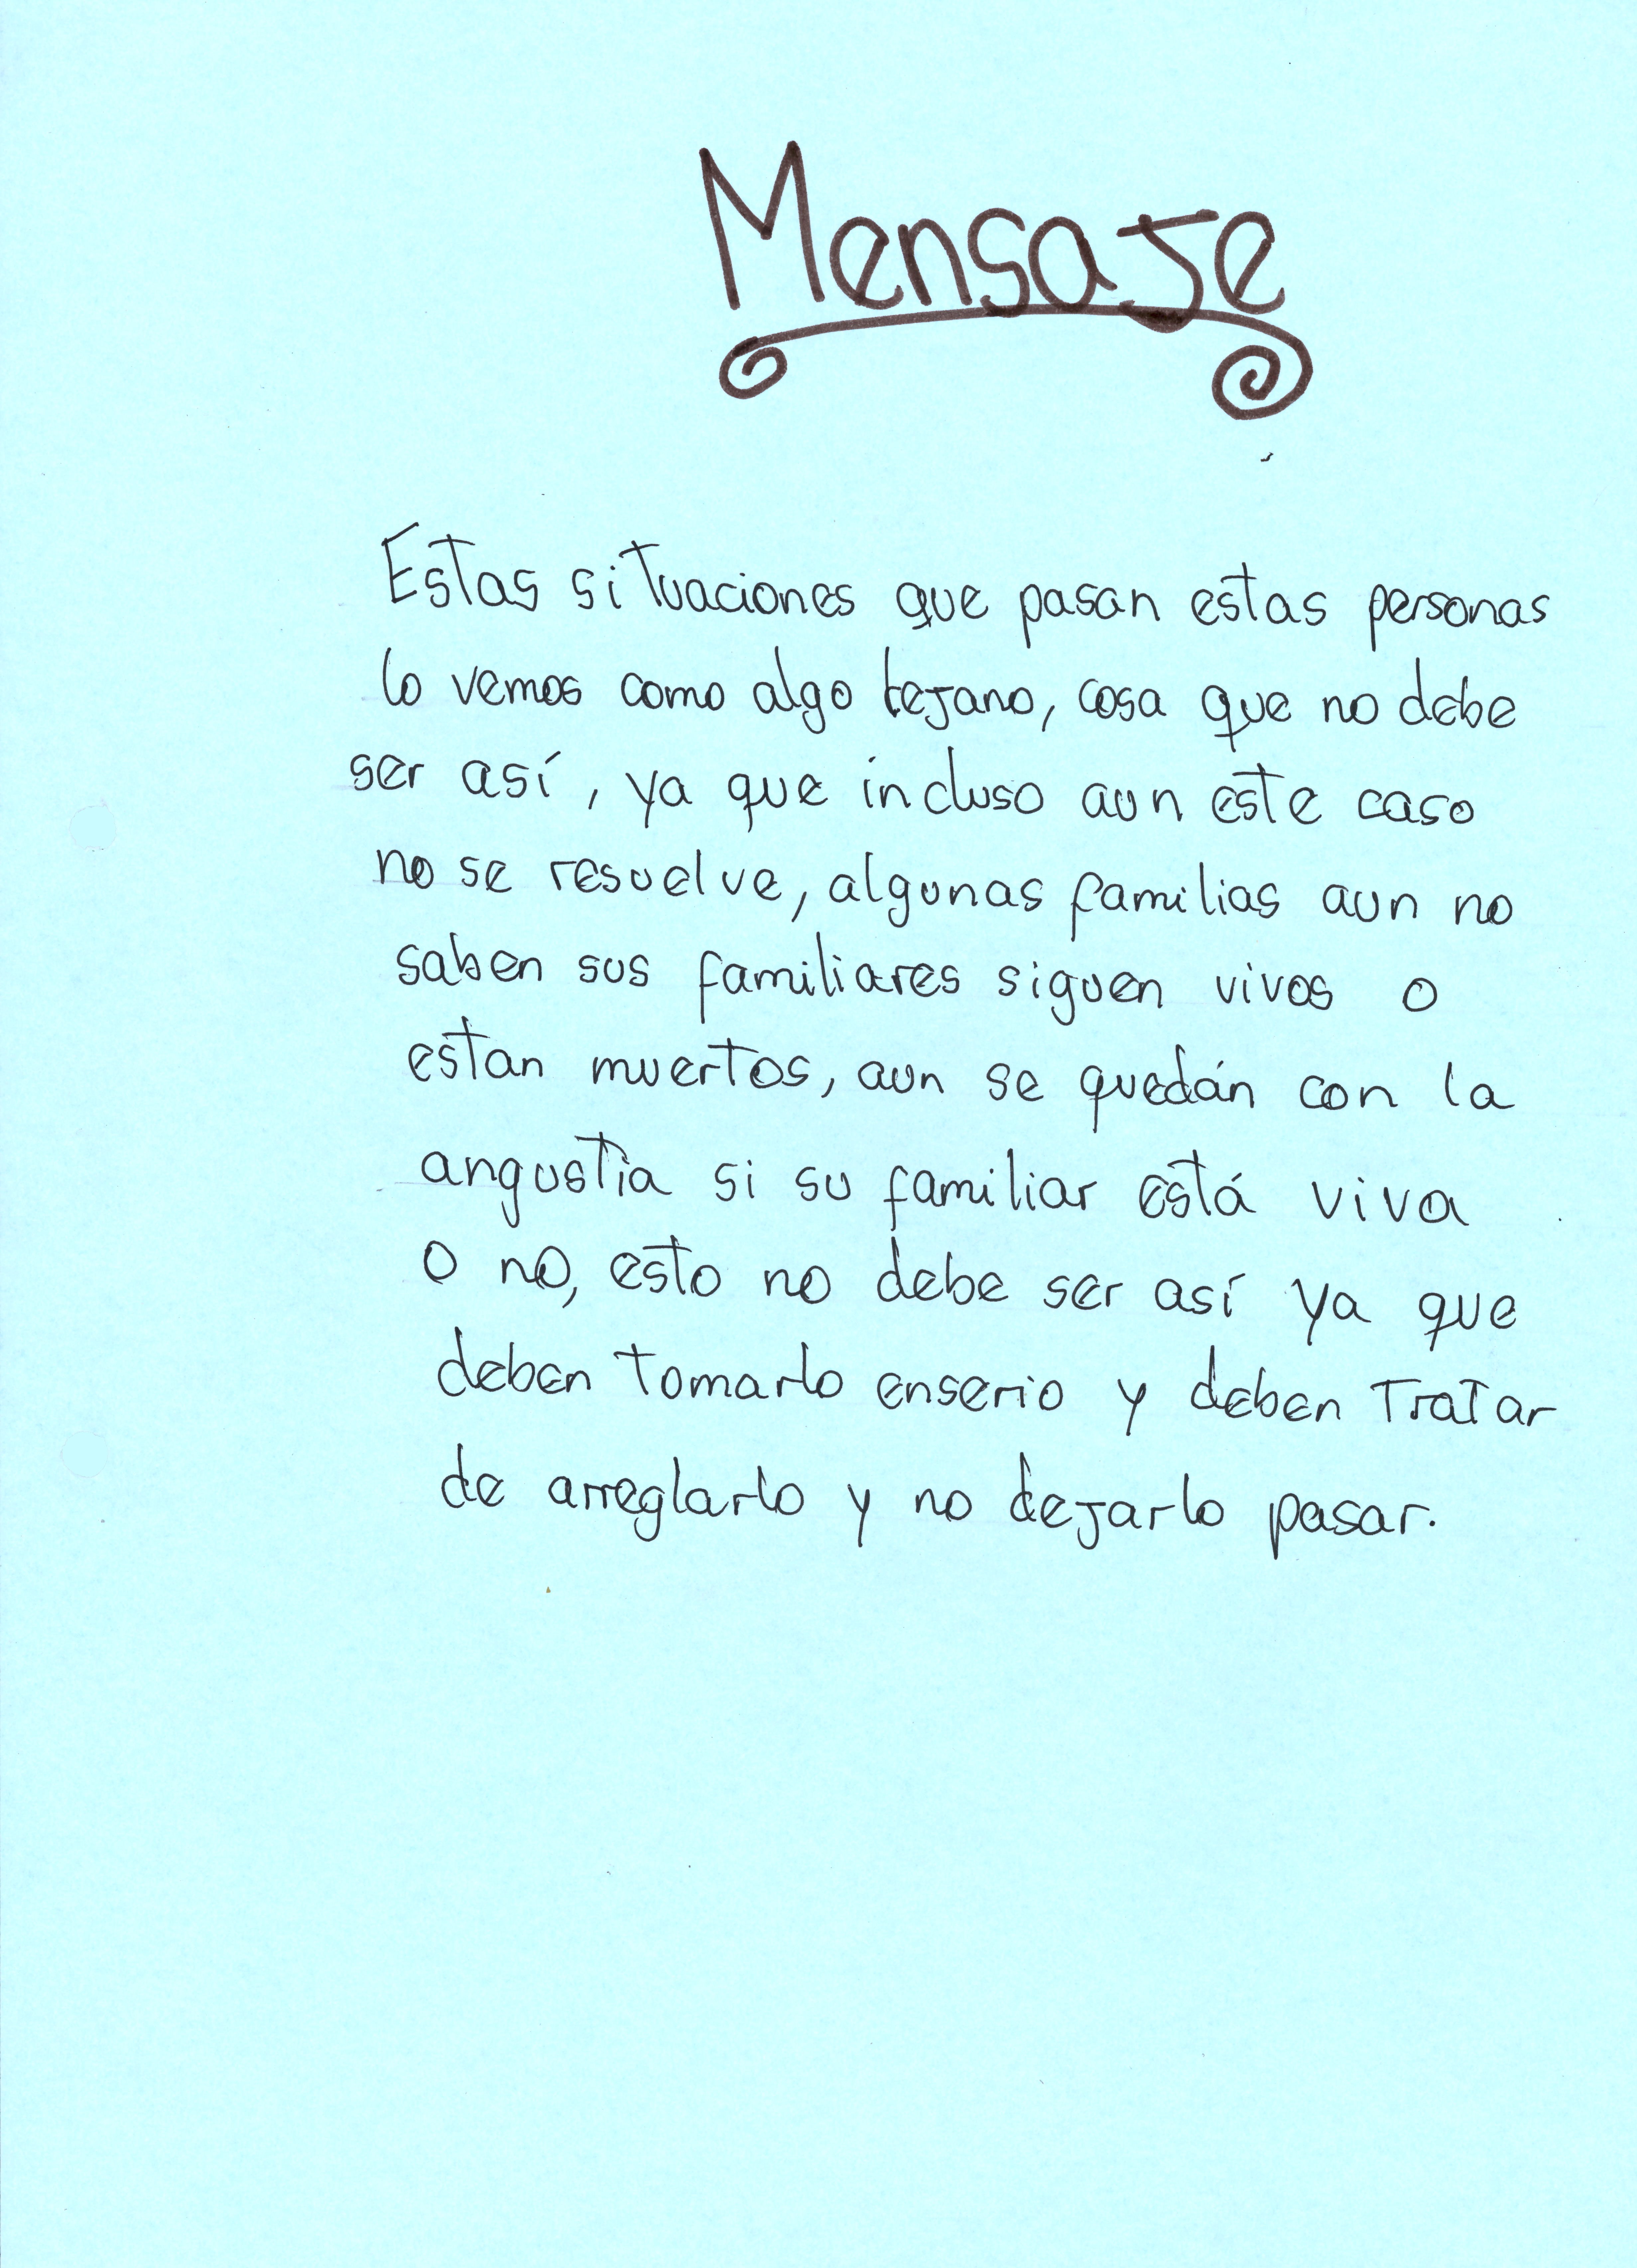 Mensaje
Estas situaciones que pasan estas personas
lo vemos como algo lejano, cosa que no debe
ser así, ya que incluso aun este caso
no se resuelve, algunas familias aun no
saben sus familiares siguen vivos o
estan muertos, aun se quedán con la
angustia si su familiar está viva
o no, esto no debe ser así ya que
deben tomarlo enserio y deben tratar
de arreglarlo y no dejarlo pasar.